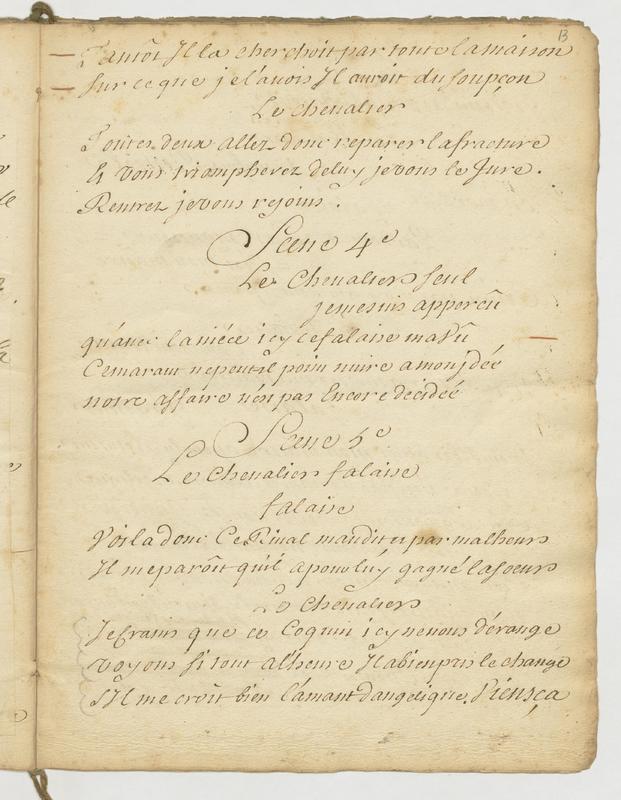 13
Tantôt Il la cherchoit par toute la maison
sur ce que je l'avois Il auroit du soupçon
Le Chevalier
Toutes deux allez donc reparer la fracture
Et vous triompherez de luy je vous le Jure.
Rentrez je vous rejoins.
Scene 4e
Le Chevalier seul
je me suis apperçû
qu'avec la niéce icy ce falaise ma vû
Ce maraut ne peut il point nuire a mon jdée
notre affaire n'est pas Encore decidée
Scene 5e
Le Chevalier falaise
falaise
Voila donc Ce Rival maudit et par malheur
Il me paroît qu'il a pour luy gagné la soeur
Le Chevalier
Je Crains que ce Coquin icy ne nous dérange
voyons si tout a l'heure Il a bien pris le change
S'Il me croît bien l'amant d'angelique. Viens ça